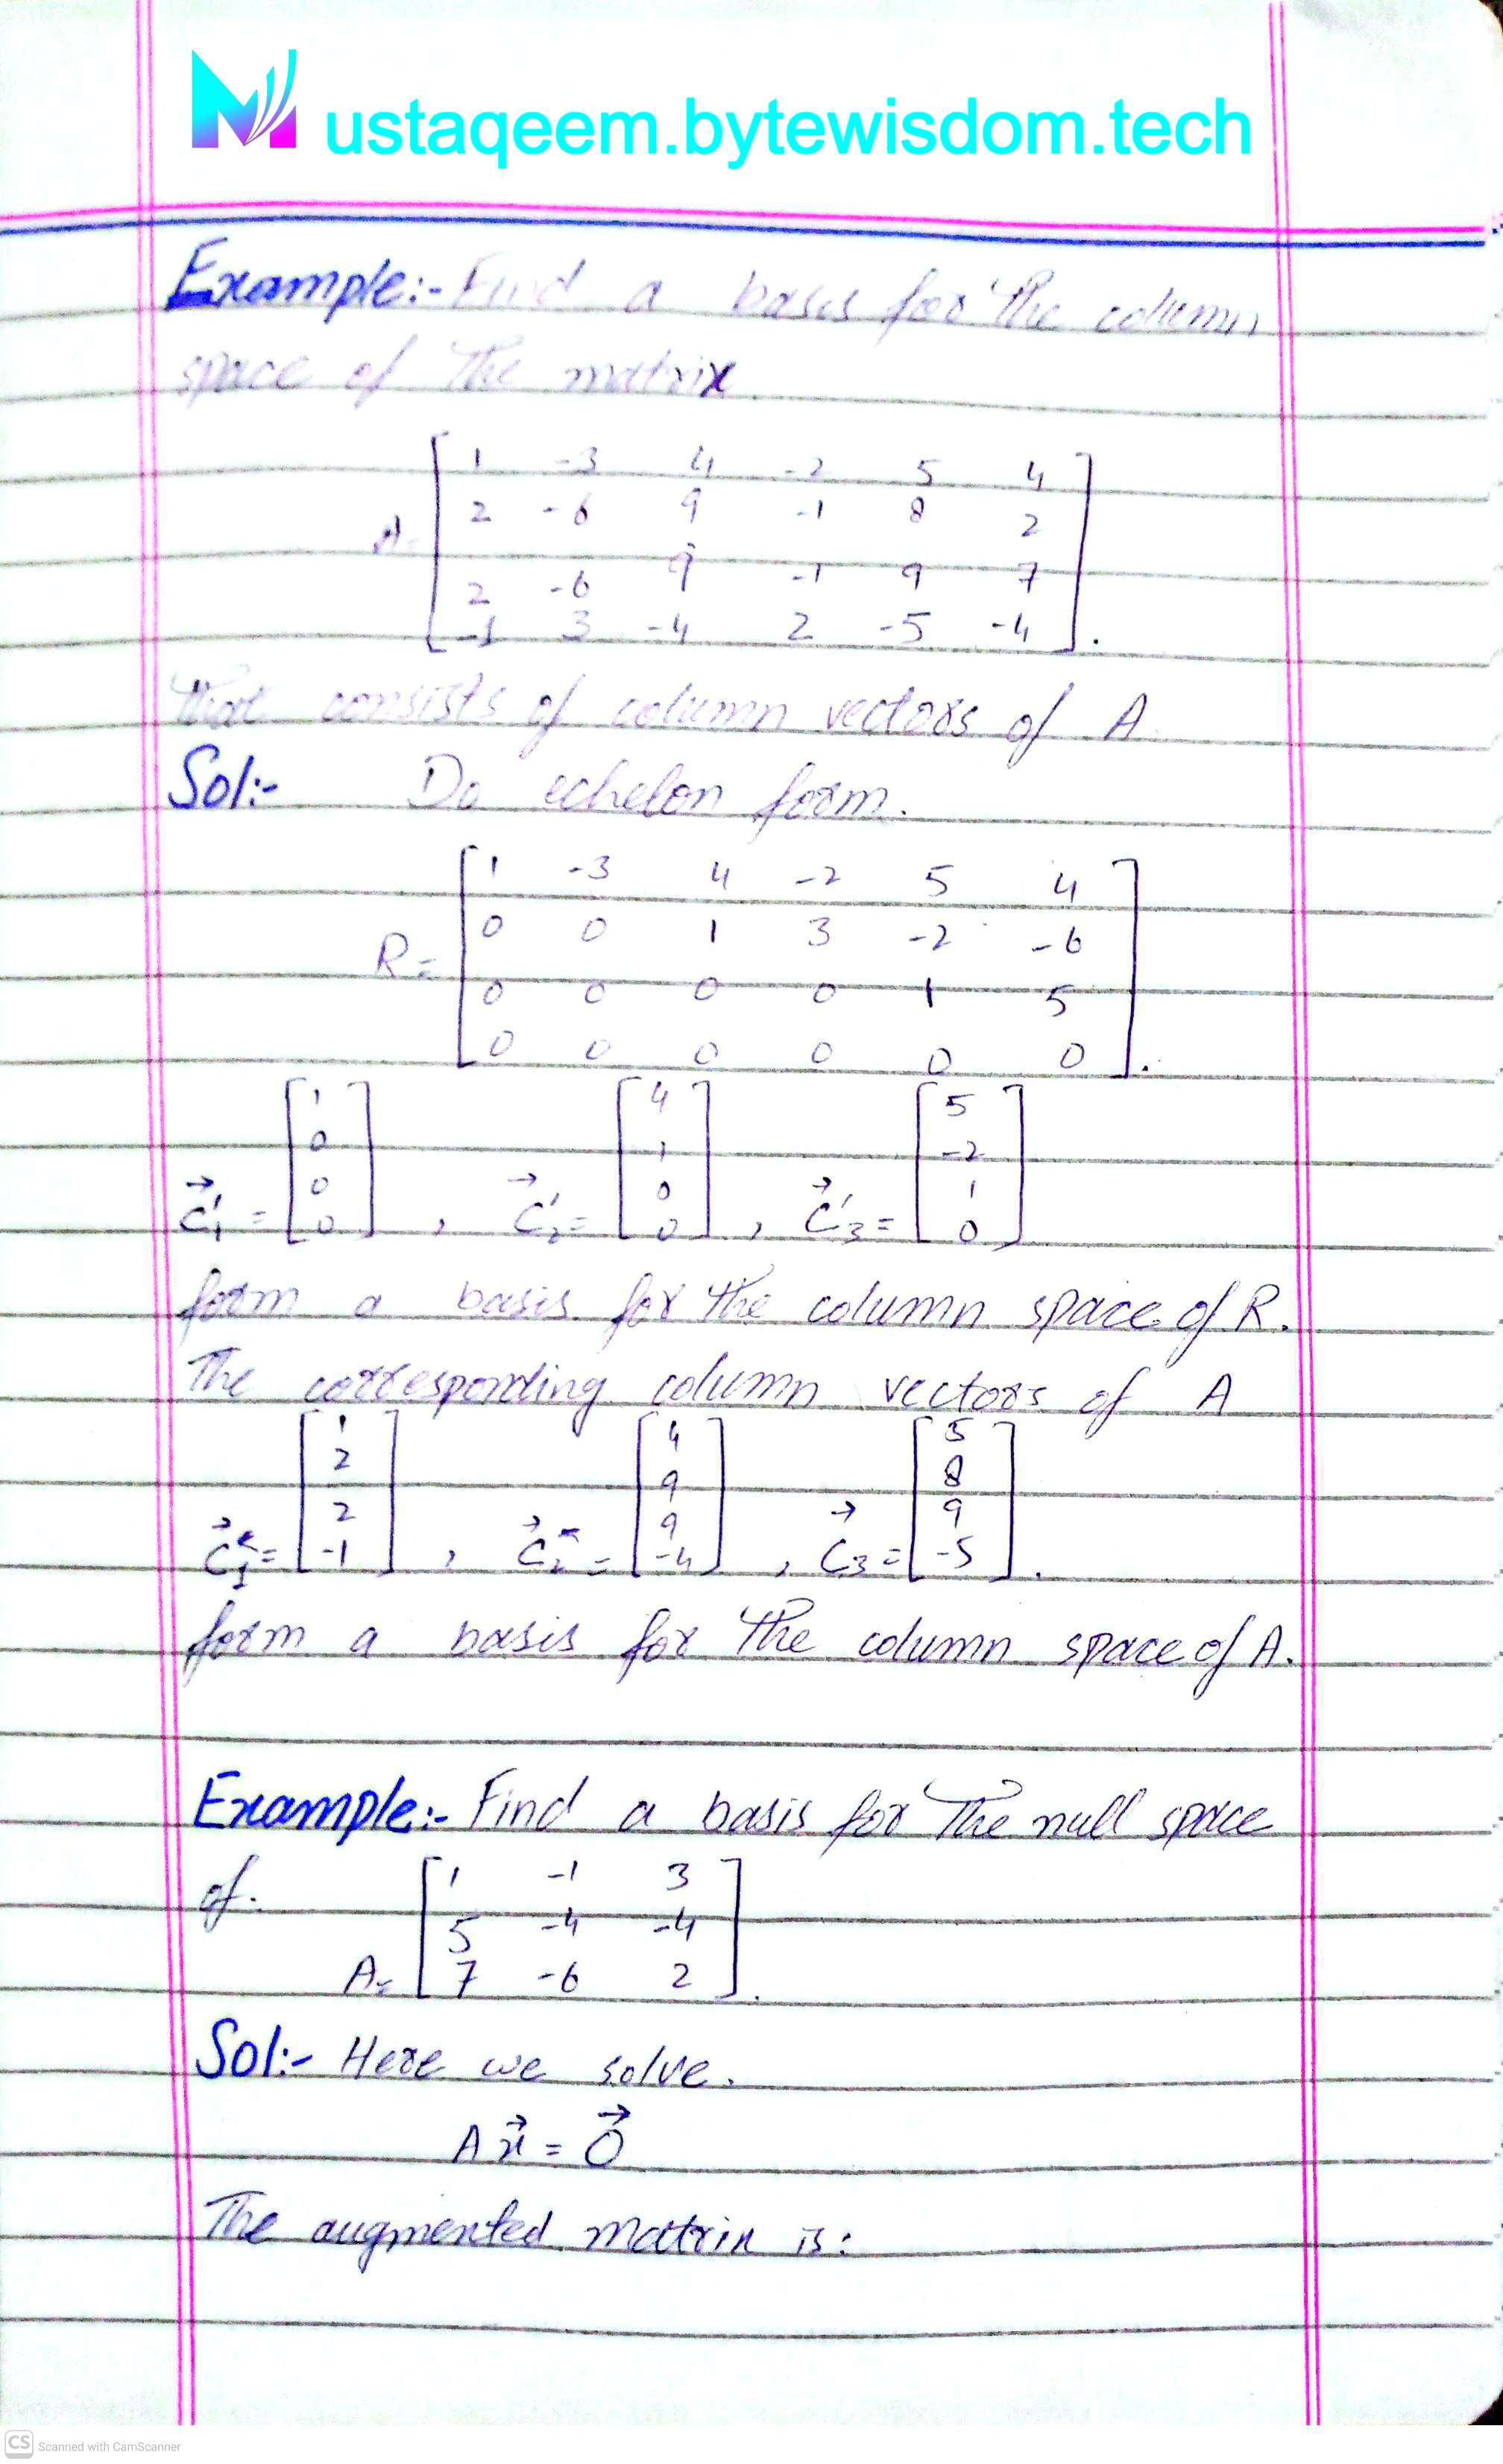 Mustaqeem.bytewisdom.tech
Example:- Find a basis for the column
space of the matrix
A = [ 1 -3 4 -2 5 4
2 -6 9 -1 8 2
2 -6 9 -1 9 7
-1 3 -4 2 -5 -4 ].
that consists of column vectors of A
Sol:- Do echelon form.
R = [ 1 -3 4 -2 5 4
0 0 1 3 -2 -6
0 0 0 0 1 5
0 0 0 0 0 0 ].
C⃗'1 = [ 1 0 0 0 ] , C⃗'2 = [ 4 1 0 0 ] , C⃗'3 = [ 5 -2 1 0 ]
form a basis for the column space of R.
The corresponding column vectors of A
C⃗1 = [ 1 2 2 -1 ] , C⃗2 = [ 4 9 9 -4 ] , C⃗3 = [ 5 8 9 -5 ].
form a basis for the column space of A.
Example:- Find a basis for the null space
of.
A = [ 1 -1 3
5 -4 -4
7 -6 2 ].
Sol:- Here we solve.
A x⃗ = 0⃗
The augmented matrix is:
CS Scanned with CamScanner